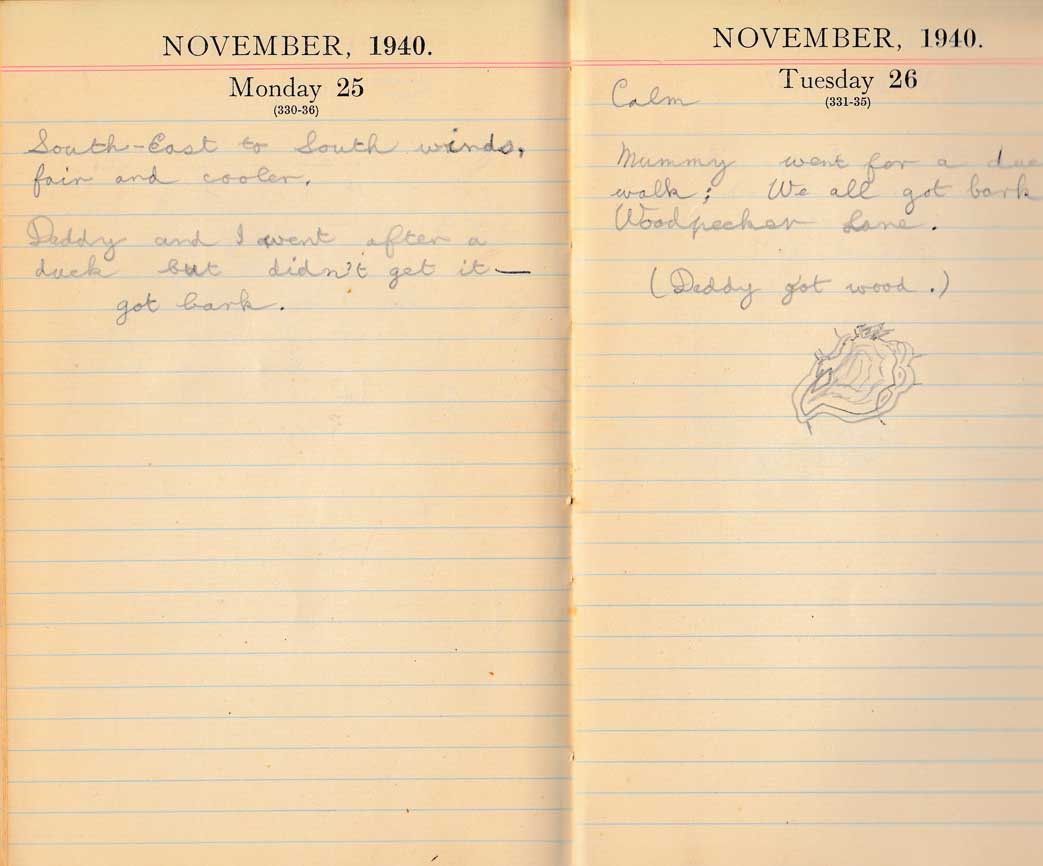 NOVEMBER, 1940.
Monday 25
(330-36)
South-East to South winds,
fair and cooler.
Daddy and I went after a
duck but didn't get it —
got bark.
NOVEMBER, 1940.
Tuesday 26
(331-35)
Calm
Mummy went for a
walk; We all got bark
Woodpecker Lane.
(Daddy got wood.)